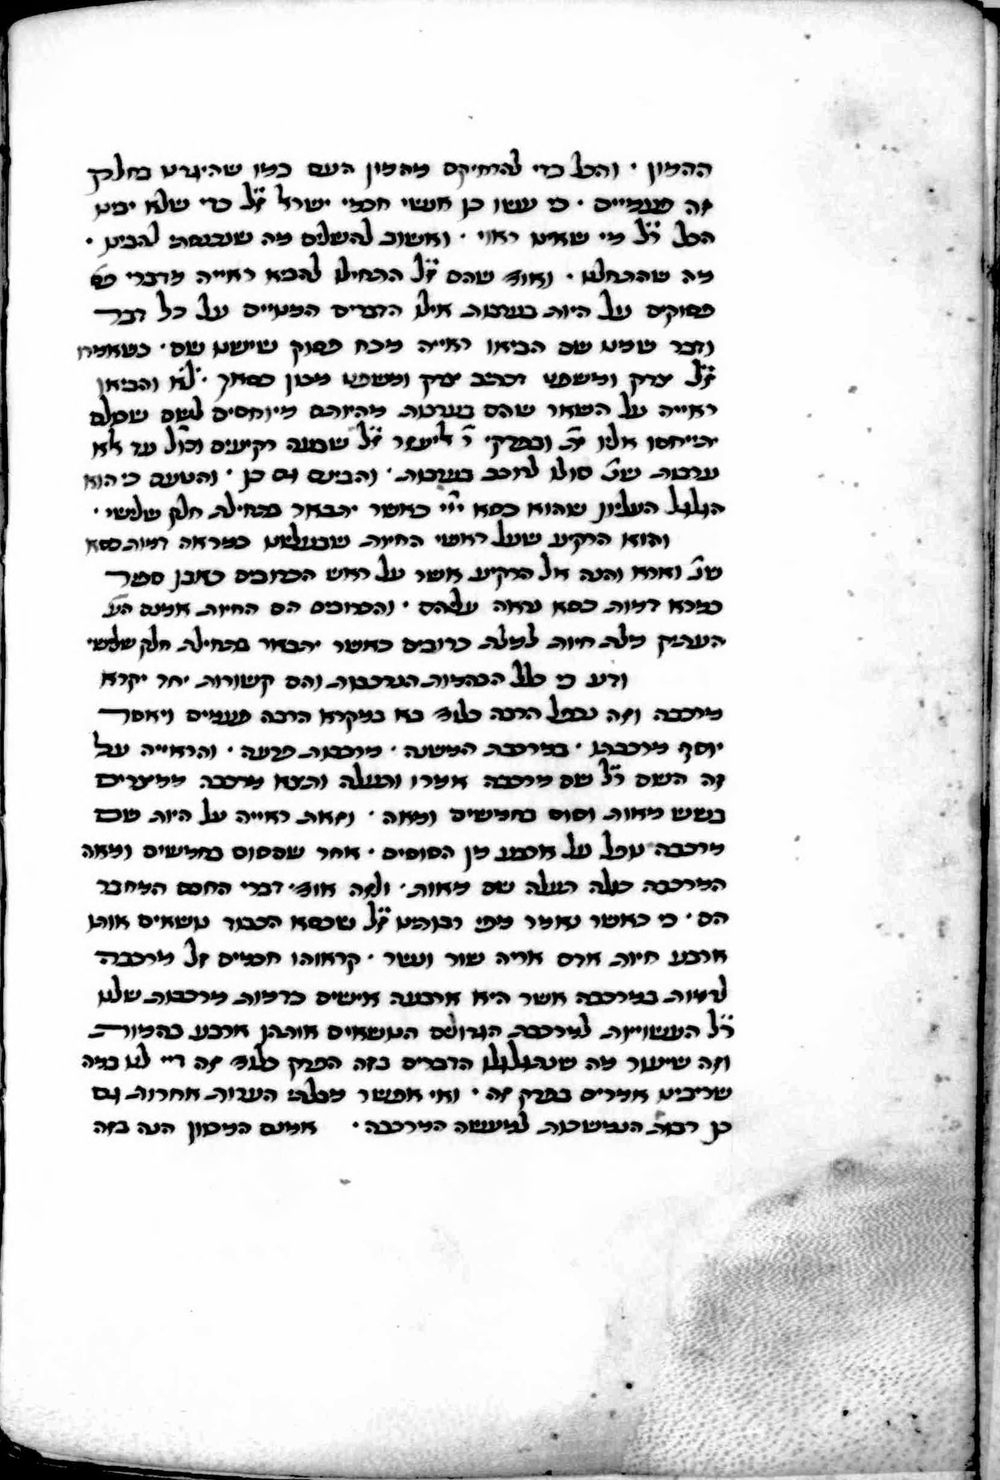 ההמון · והכל כדי להרחיקם מהמון העם כמו שהיגרע בחלק
זה פעמיים · כי עשו כן אנשי חכמי ישראל ז״ל כדי שלא יבינו
הכל ר״ל מי שאינו ראוי · ואשוב להשלים מה שנכנסתי להבינו ·
מה שהתחלנו · ואומ׳ שהם ז״ל התחילו להביא ראייה מדברי פס׳
פסוקים על היות בערבות אילו הדברים המנויים על כל דבר
ודבר שמנו שם הביאו ראייה מכח פסוק שישנו שם · כשאמרו
ז״ל צדק ומשפט דכתיב צדק ומשפט מכון כסאך · והביאו
ראייה על השאר שהם בערבות מהיותם מיוחסים לשם שכלם
יתייחסו אליו ית׳ ובפרקי ר׳ ליעזר ז״ל שבעה רקיעים וכו׳ עד לא
ערבות שנ׳ סולו לרוכב בערבות · והבינם גם כן · והטעם כי הוא
הגלגל העליון שהוא כסא ייי כאשר יתבאר בתחילת חלק שלישי ·
והוא הרקיע שעל ראשי החיות שבעליונו כמראה דמות כסא
שנ׳ ואראה והנה אל הרקיע אשר על ראש הכרובים כאבן ספיר
כמרא דמות כסא נראה עליהם · והכרובים הם החיות אמנם הע׳
העתיק מלת חיות למלת כרובים כאשר יתבאר בתחילת חלק שלישי
ודע כי כלל הבהמות הנרכבות והם קשורות יחד יקרא
מרכבה וזה נכפל הרבה כלומ׳ בא במקרא הרבה פעמים ויאסר
יוסף מרכבתו · במרכבת המשנה · מרכבות פרעה · והראייה על
זה השם ר״ל שם מרכבה אמרו ותעלה ותצא מרכבה ממצרים
בשש מאות וסוס בחמשים ומאה · וזאת ראייה על היות שם
מרכבה נופל על ארבע מן הסוסים · אחר שהסוס בחמשים ומאה
המרכבה כולה תעלה שש מאות · וזה אומ׳ דברי החכם המחבר
הם · כי כאשר נאמר מפי רבותינו ז״ל שכסא הכבוד נושאים אותו
ארבע חיות אדם אריה שור ונשר · קראוהו חכמים ז״ל מרכבה
לדמות במרכבה אשר היא ארבעה אישים כדמות מרכבות שלנו
ר״ל העשויות למרכבת הגדולים הנושאים אותן ארבע בהמות
וזה שיעור מה שנתגלגלו הדברים בזה הפרק כלומ׳ זה דיי לנו במה
שרבינו אמרים בפרק זה · ואי אפשר מבלתי הערות אחרות גם
כן רבות הנמשכות למעשה המרכבה · אמנם המכוון הנה בזה